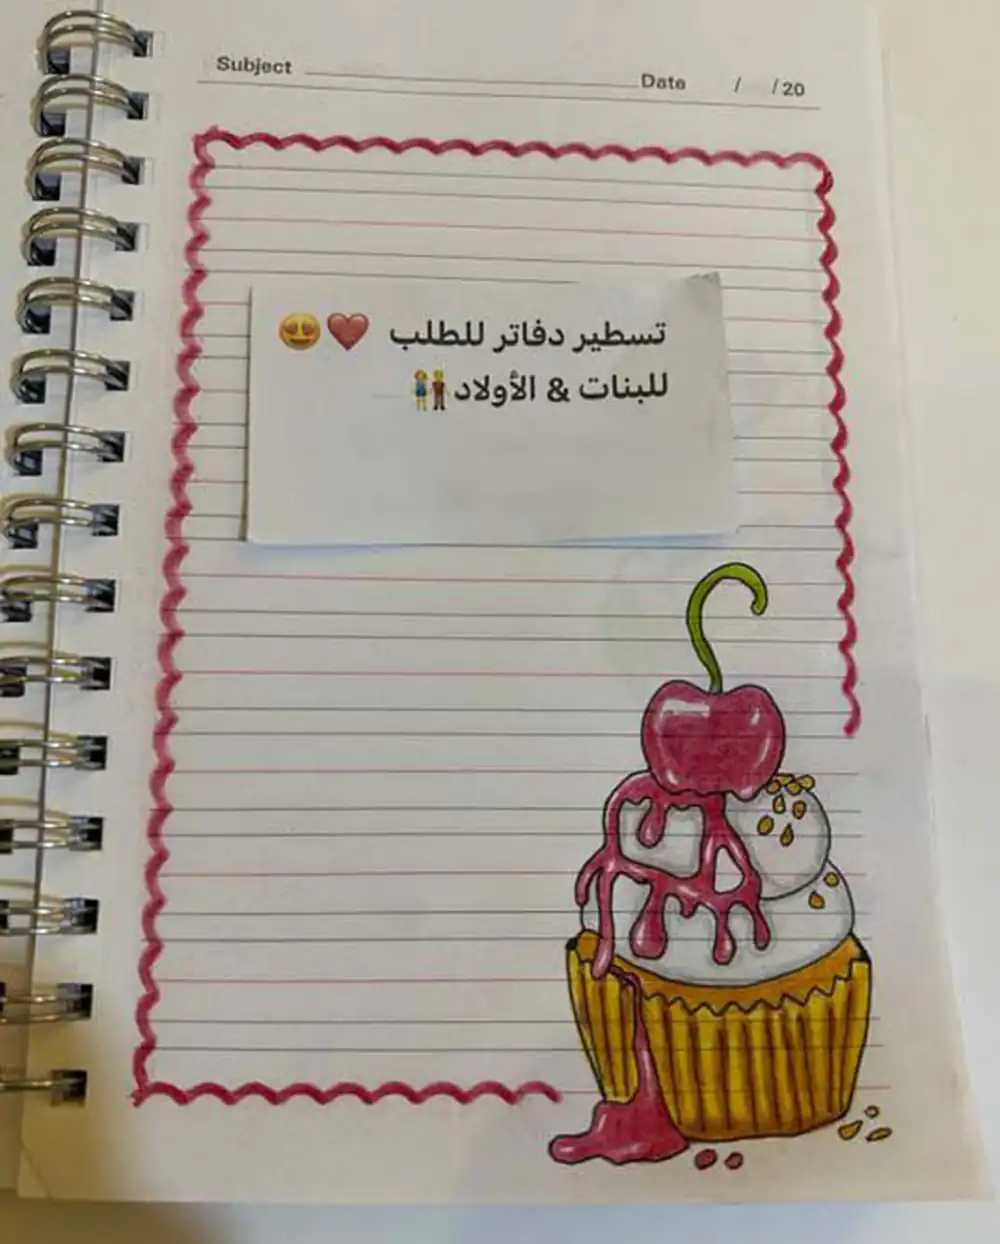 Subject Date / / 20
تسطير دفاتر للطلب ❤️😍
للبنات & الأولاد👫